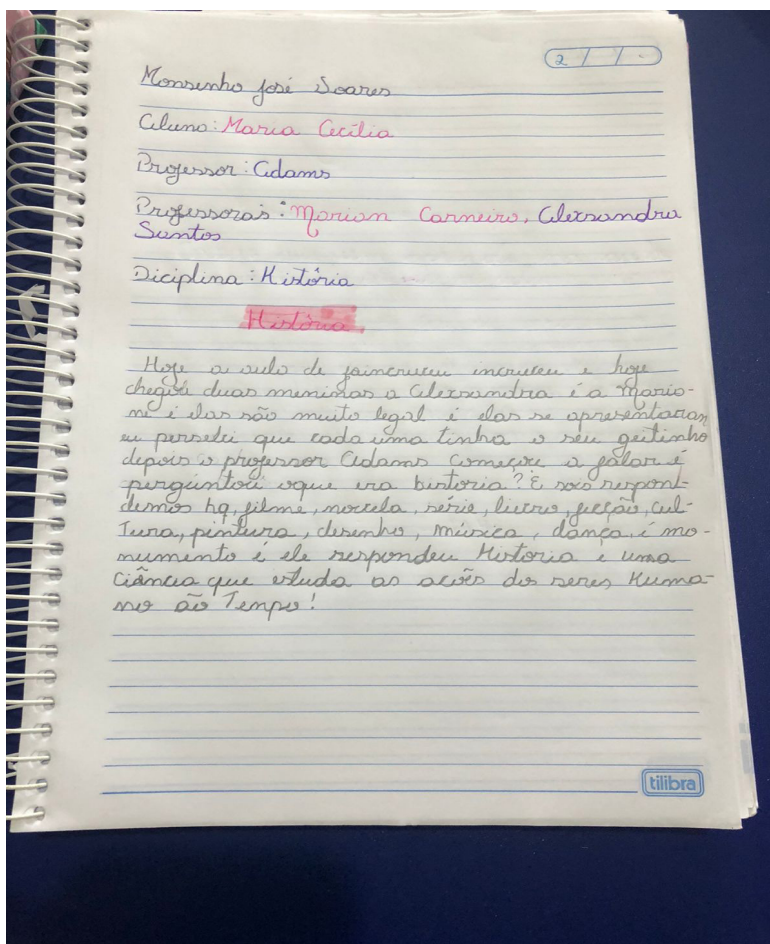 2 / / .
Monsenho José Soares
Aluno: Maria Cecília
Professor: Adams
Professoras: Marian Carneiro, Alexsandra
Santos
Diciplina: História
História
Hoje a aula de foi e hoje
chegou duas meninas a Alexsandra é a Mario-
ni i elas são muito legal i elas se apresentaram
eu persebi que cada uma tinha o seu geitinho
depois o professor Adams começou a falar é
perguntou oque era historia? E nois respon-
demos hq, filme, novela, série, livro, ficção, cul-
Tura, pintura, desenho, música, dança, i mo-
numento i ele respondeu Historia e uma
Ciância que estuda as acões dos seres Huma-
no ão Tempo!
tilibra